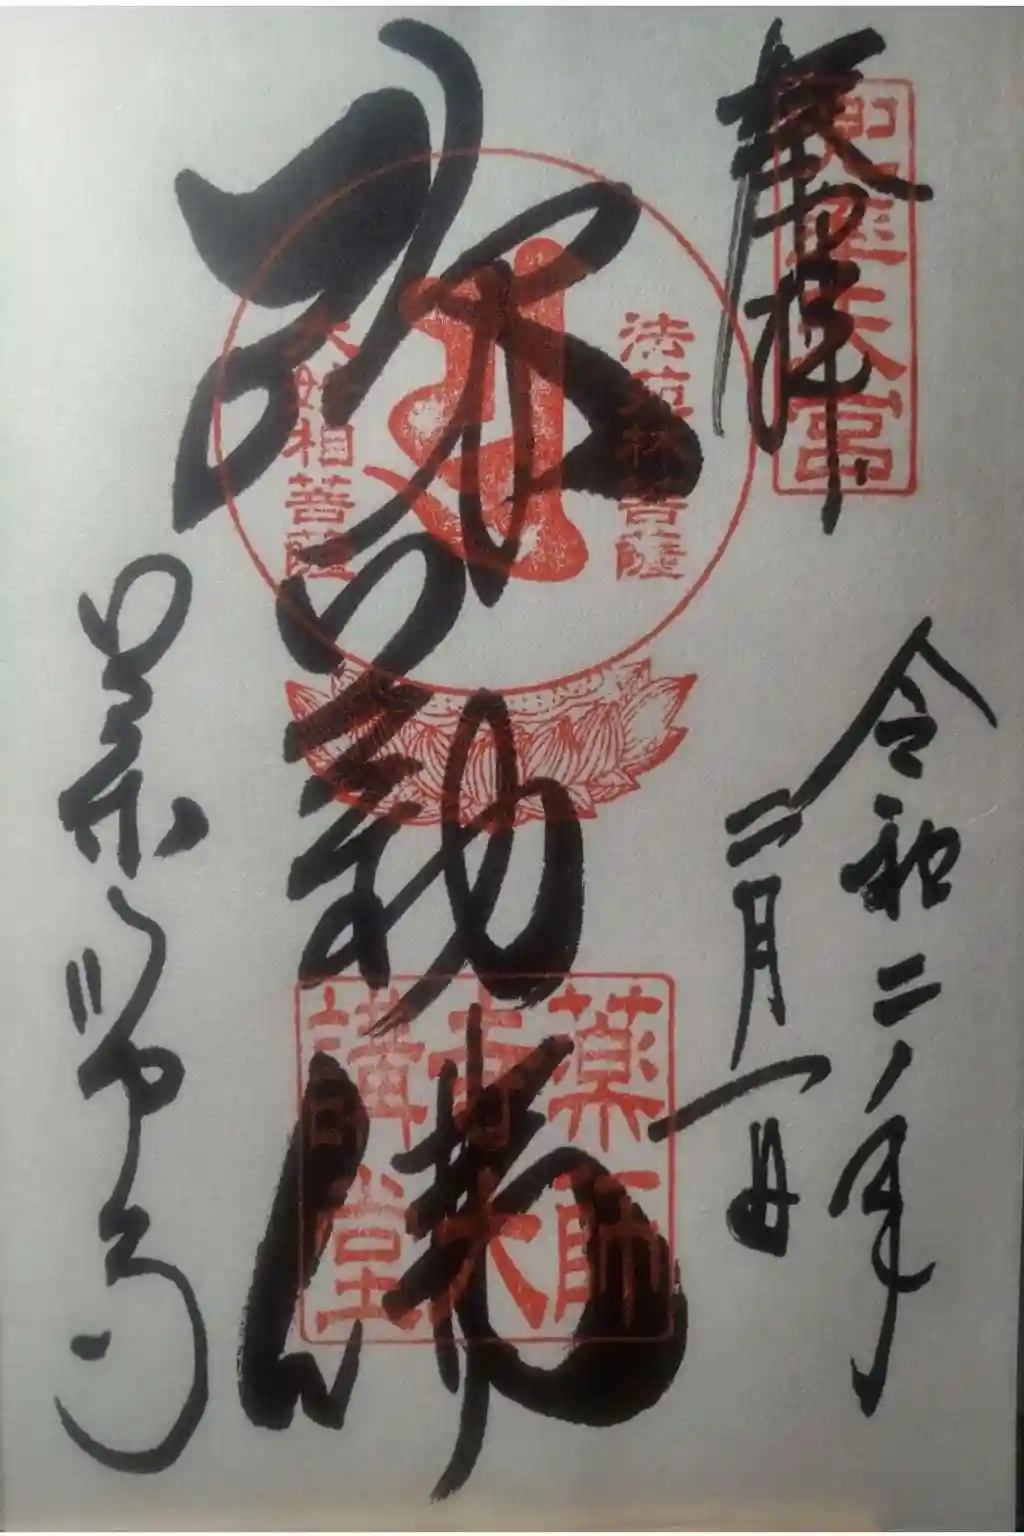 奉拝
知足天宮
令和二年
二月一日
弥勒佛
法苑林菩薩
大妙相菩薩
薬師
寺大
講堂
薬師寺